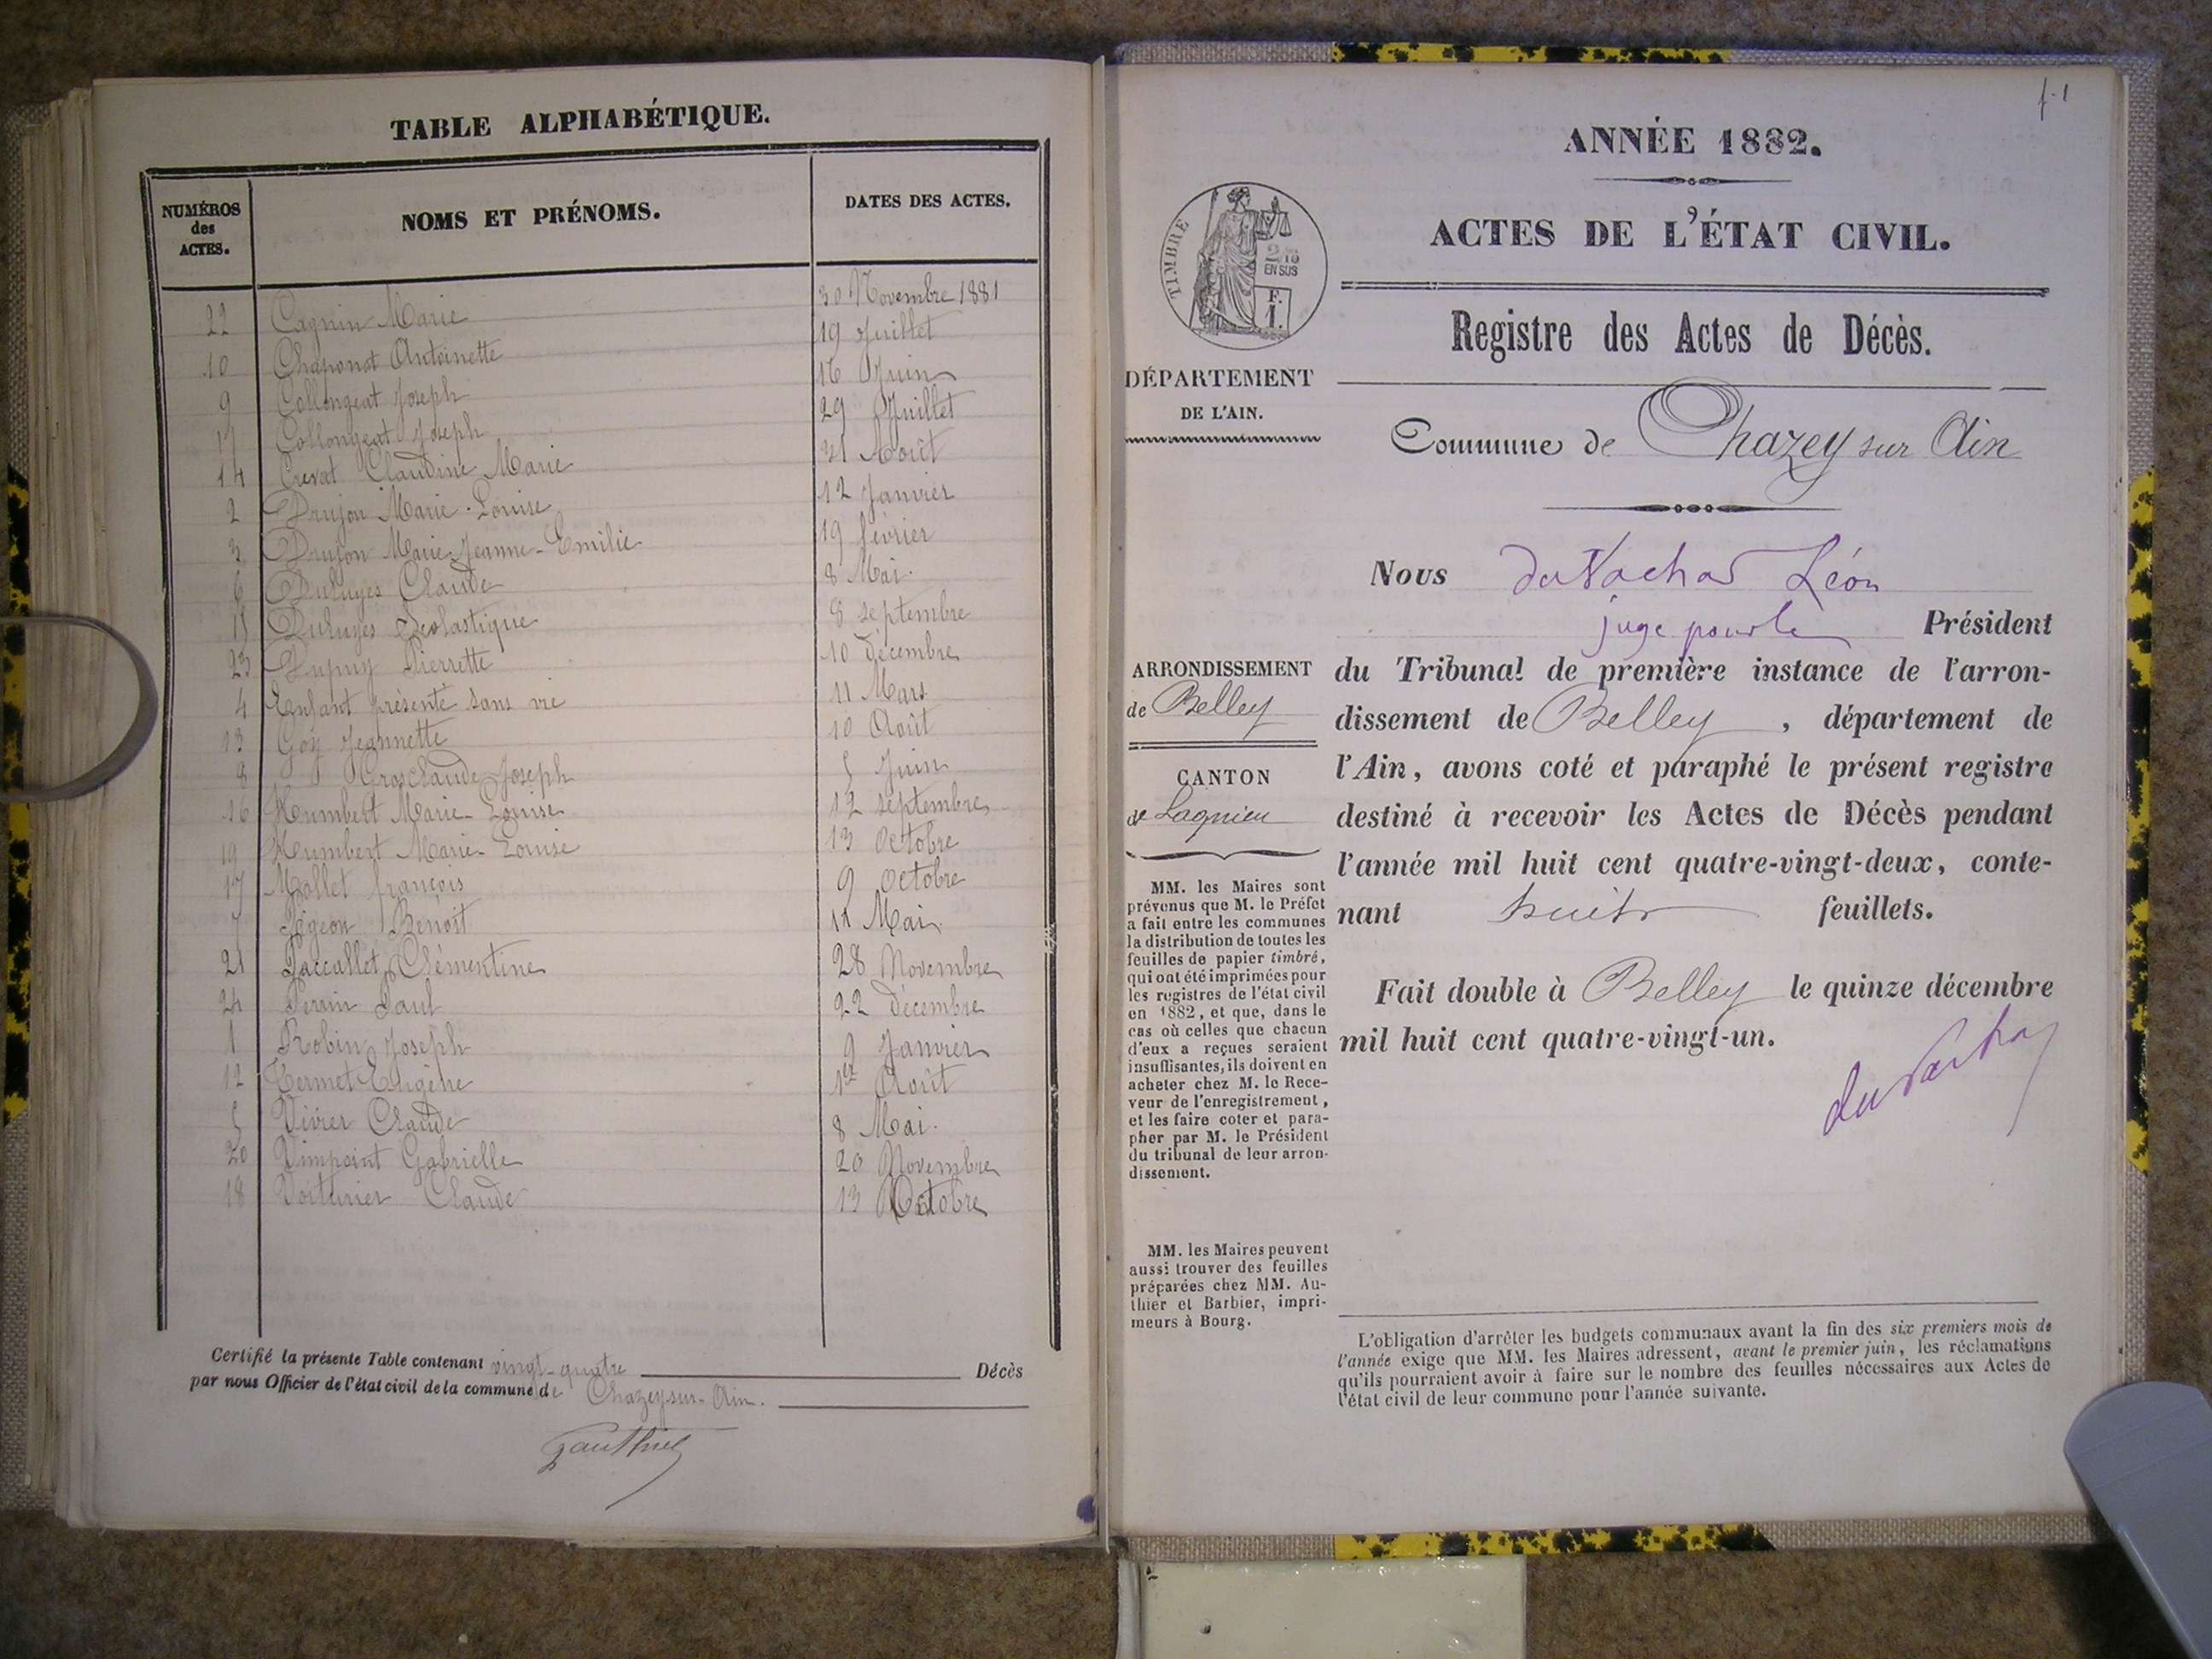 TABLE ALPHABÉTIQUE.
NUMÉROS des ACTES. NOMS ET PRÉNOMS. DATES DES ACTES.
22 Cagnin Marie 30 Novembre 1881
10 Chaponat Antoinette 19 Juillet
9 Collongeat Joseph 16 Juin
11 Collongeat Joseph 29 Juillet
14 Crevat Claudine Marie 31 Août
2 Drujon Marie-Louise 12 Janvier
3 Drujon Marie Jeanne-Emilie 19 février
6 Claude 8 Mai.
15 Scolastique 8 septembre
23 Dupuy Pierrette 10 décembre
4 Enfant présenté sans vie 11 Mars
13 Goy Jeannette 10 Août
8 Gros Claude Joseph 5 Juin
16 Humbert Marie-Louise 12 septembre
19 Humbert Marie-Louise 13 octobre
17 Mollet françois 9 octobre
7 Pégeon Benoit 11 Mai
21 Paccallet Clémentine 28 Novembre
24 Perrin Paul 22 décembre
1 Robin Joseph 9 Janvier
12 Termet Eugène 1er Août
5 Vivier Claude 8 Mai.
20 Vimpoint Gabrielle 20 Novembre
18 Voiturier Claude 13 Octobre
Certifié la présente Table contenant vingt-quatre Décès
par nous Officier de l'état civil de la commune de Chazey-sur-Ain.
Gauthier
f. 1
ANNÉE 1882.
ACTES DE L'ÉTAT CIVIL.
TIMBRE
2/10
EN SUS
F.
1.
Registre des Actes de Décès.
DÉPARTEMENT
DE L'AIN.
Commune de Chazey sur Ain
Nous Léon
juge pour le Président
ARRONDISSEMENT
de Belley
CANTON
de Lagnieu
du Tribunal de première instance de l'arron-
dissement de Belley, département de
l'Ain, avons coté et paraphé le présent registre
destiné à recevoir les Actes de Décès pendant
l'année mil huit cent quatre-vingt-deux, conte-
nant huit feuillets.
Fait double à Belley le quinze décembre
mil huit cent quatre-vingt-un.
MM. les Maires sont
prévenus que M. le Préfet
a fait entre les communes
la distribution de toutes les
feuilles de papier timbré,
qui ont été imprimées pour
les registres de l'état civil
en 1882, et que, dans le
cas où celles que chacun
d'eux a reçues seraient
insuffisantes, ils doivent en
acheter chez M. le Rece-
veur de l'enregistrement,
et les faire coter et para-
pher par M. le Président
du tribunal de leur arron-
dissement.
MM. les Maires peuvent
aussi trouver des feuilles
préparées chez MM. Au-
thier et Barbier, impri-
meurs à Bourg.
L'obligation d'arrêter les budgets communaux avant la fin des six premiers mois de
l'année exige que MM. les Maires adressent, avant le premier juin, les réclamations
qu'ils pourraient avoir à faire sur le nombre des feuilles nécessaires aux Actes de
l'état civil de leur commune pour l'année suivante.